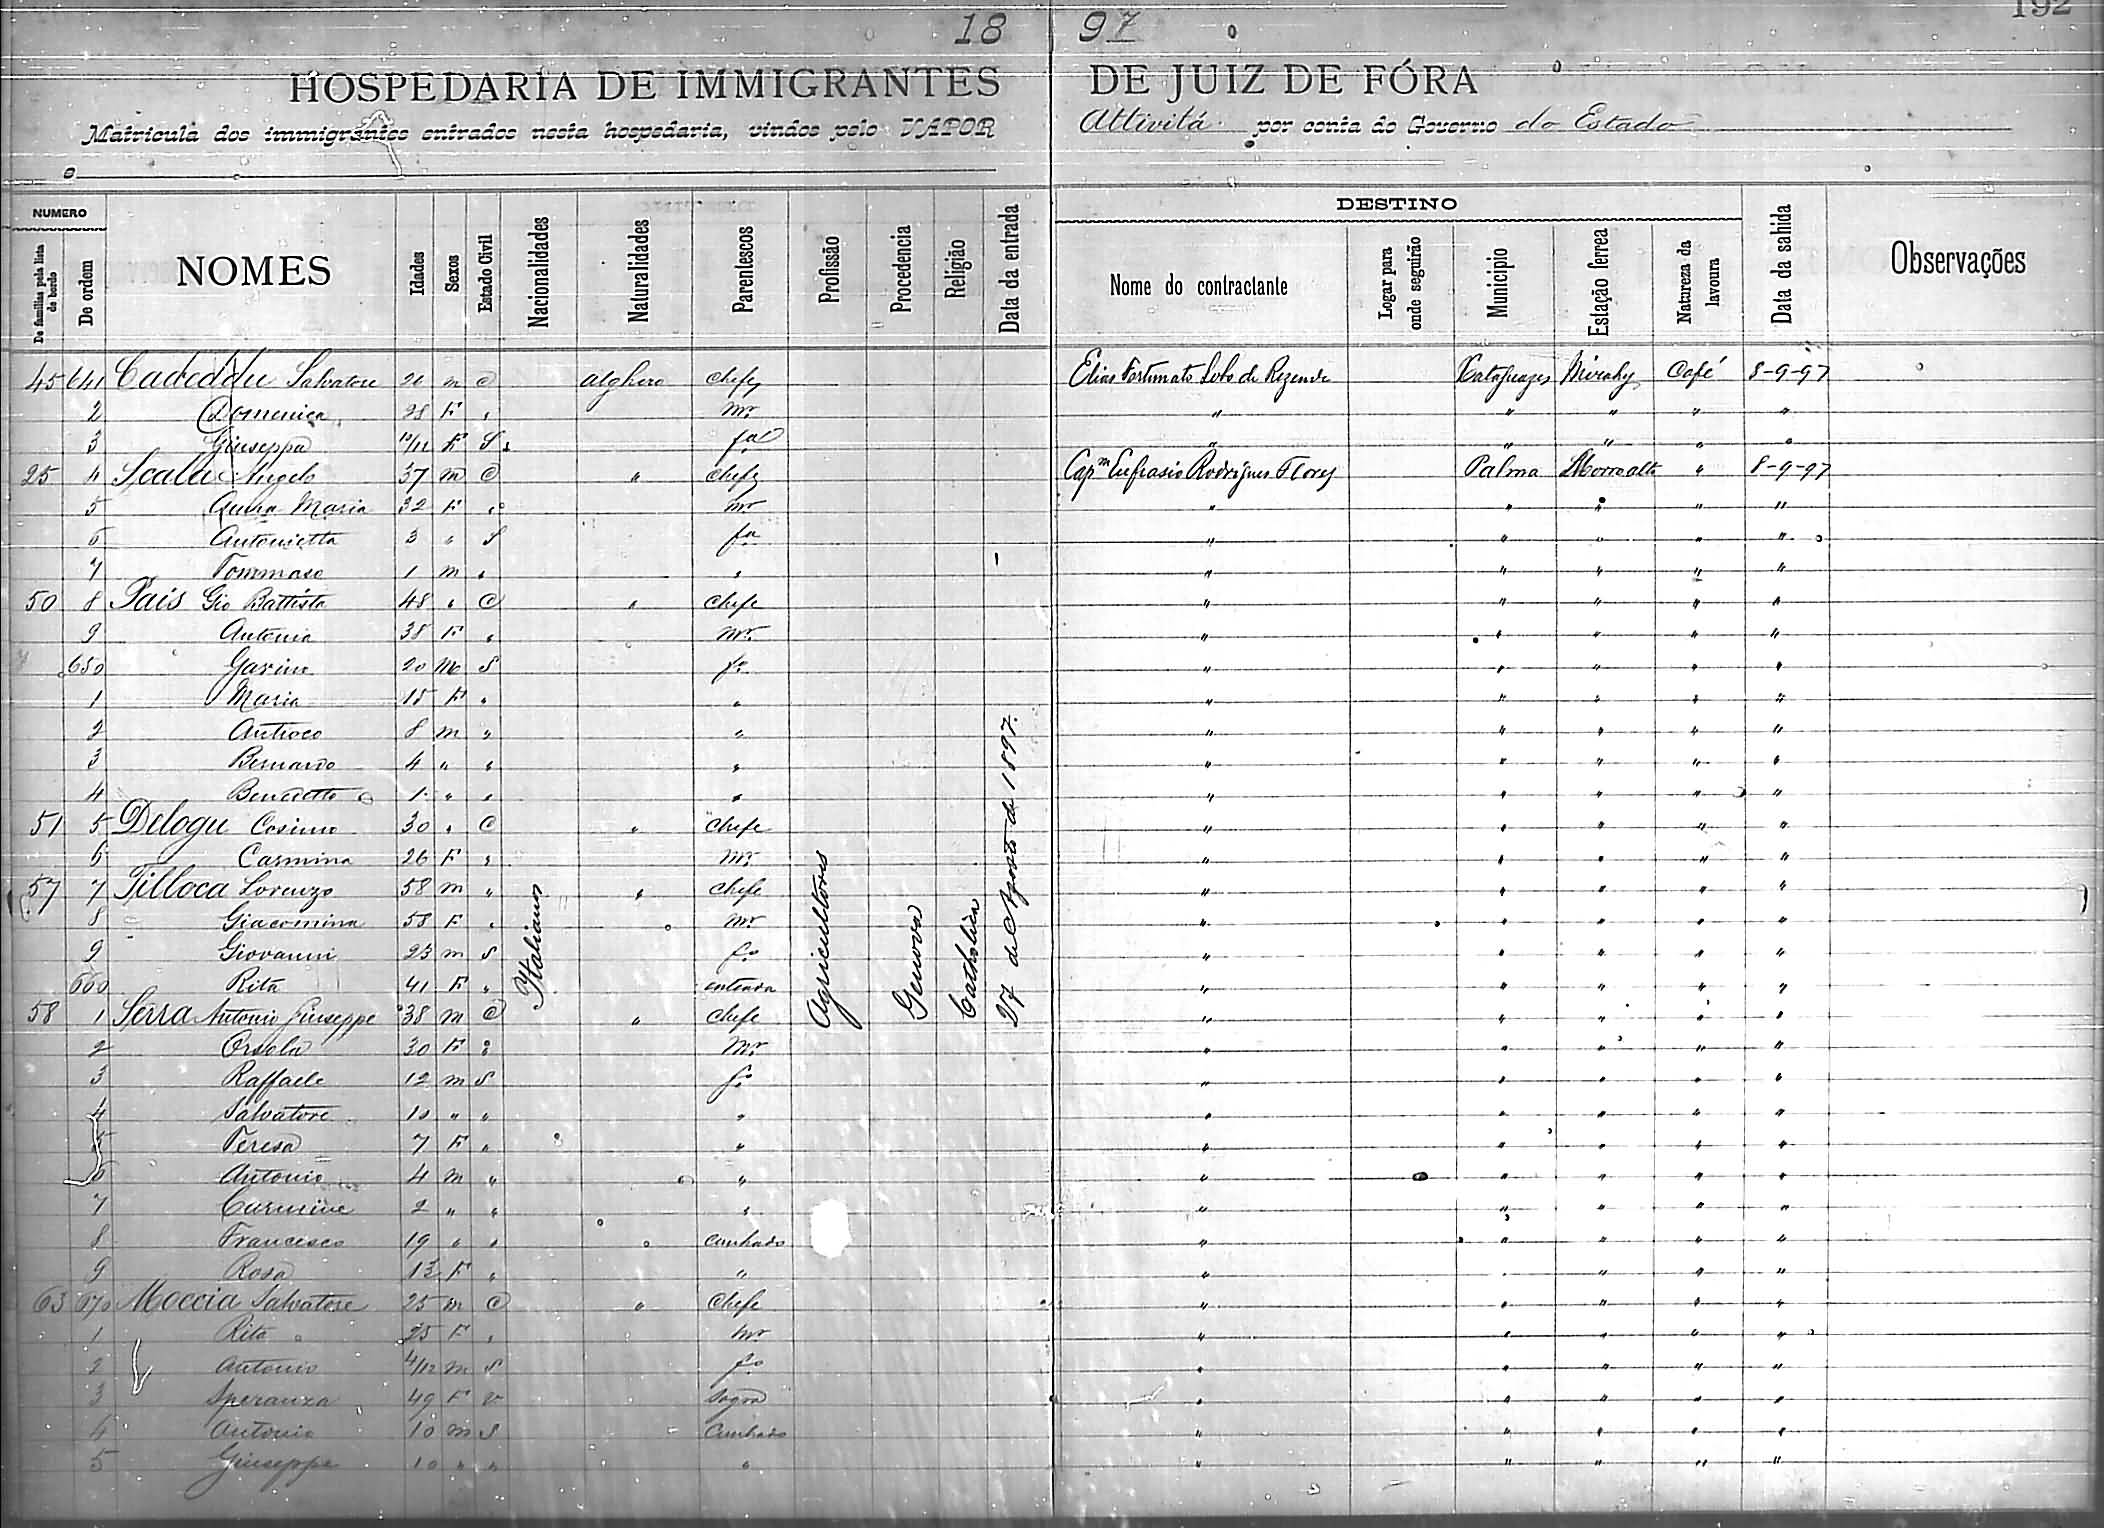 192
18 97
HOSPEDARIA DE IMMIGRANTES DE JUIZ DE FÓRA
Matricula dos immigrantes entrados nesta hospedaria, vindos pelo VAPOR Attivitá por conta do Governo do Estado
NUMERO DESTINO
De familias pela lista de bordo De ordem NOMES Idades Sexos Estado Civil Nacionalidades Naturalidades Parentescos Profissão Procedencia Religião Data da entrada Nome do contractante Logar para onde seguirão Municipio Estação ferrea Natureza da lavoura Data da sahida Observações
45 641 Cadeddu Salvatore m C alghero chefe Elias Fortunato Lobo de Rezende Cataguazes Mirahy Café 8-9-97
2 Domenica 28 F " mr. " " " " "
3 Giuseppa 10/12 F S fa " " " " "
25 4 Scala Angelo 37 m C " chefe Capm Eufrasio Rodrigues Flores Palma Morro alto " 8-9-97
5 Anna Maria 32 F " mr " " " " "
6 Antonietta 3 " S fa " " " " "
7 Tommaso 1 m " " " " " " "
50 8 Pais Gio Battista 48 " C " chefe " " " " "
9 Antonia 38 F " mr. " " " " "
650 Gavino 20 m S fo " " " " "
1 Maria 15 F " " " " " " "
2 Antioco 8 m " " " " " " "
3 Bernardo 4 " " " " " " " "
4 Benedetto 1 " " " " " " " "
51 5 Delogu Cosimo 30 " C " chefe " " " " "
6 Carmina 26 F " mr. " " " " "
57 7 Pilloca Lorenzo 58 m " " chefe " " " " "
8 Giacomina 58 F " mr. " " " " "
9 Giovanni 23 m S fo " " " " "
660 Rita 41 F " " " " " "
58 1 Serra Antonio Giuseppe 38 m C " chefe " " " " "
2 Orsola 30 F " mr " " " " "
3 Raffaele 12 m S fo " " " " "
4 Salvatore 10 " " " " " " " "
5 Teresa 7 F " " " " " " "
6 Antonio 4 m " " " " " " "
7 Carmine 2 " " " " " " " "
8 Francesco 19 " " cunhado " " " " "
9 Rosa 13 F " " " " " "
63 670 Moccia Salvatore 25 m C " chefe " " " " "
1 Rita 25 F " mr " " " " "
2 Antonio 4/12 m S fo " " " " "
3 Speranza 49 F v sogra " " " " "
4 Antonio 10 m S cunhado " " " " "
5 Giuseppe 10 " " " " " " " "
Italianos
Agricultores
Genova
Catholica
27 de Agosto de 1897.